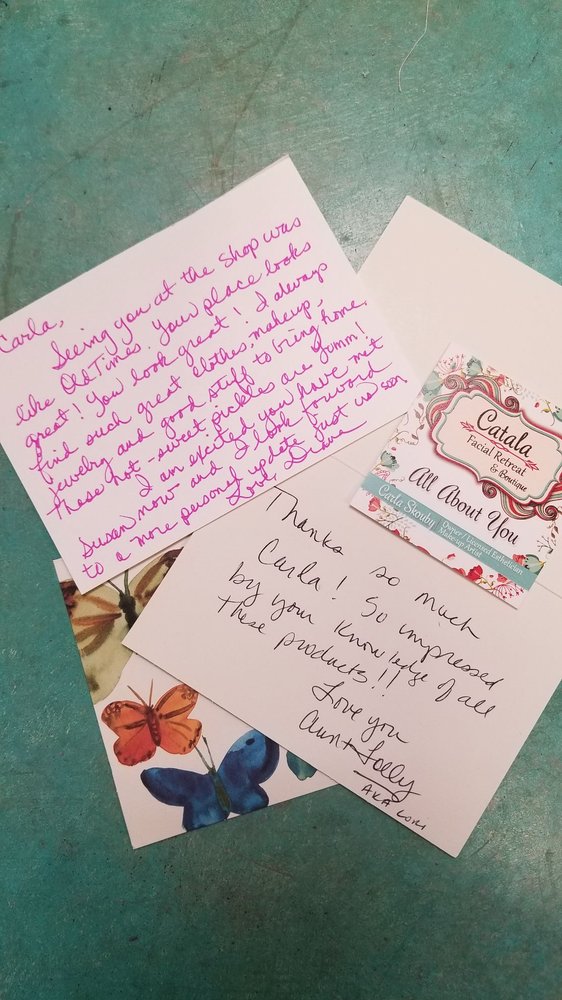 Carla,
Seeing you at the Shop was
like Old Times. Your place looks
great! You look great! I always
find such great clothes, makeup,
jewelry and good stuff to bring home.
these hot, sweet pickles are Yumm!
I am excited you have met
Susan now and I look forward
to a more personal update just us soon
Love, Diane
Catala
Facial Retreat
& Boutique
All About You
Carla Skouby
Owner / Licensed Esthetician
Makeup Artist
Thanks so much
Carla! So impressed
by your knowledge of all
these products!!
Love you
Aunt Lolly
AKA Lori